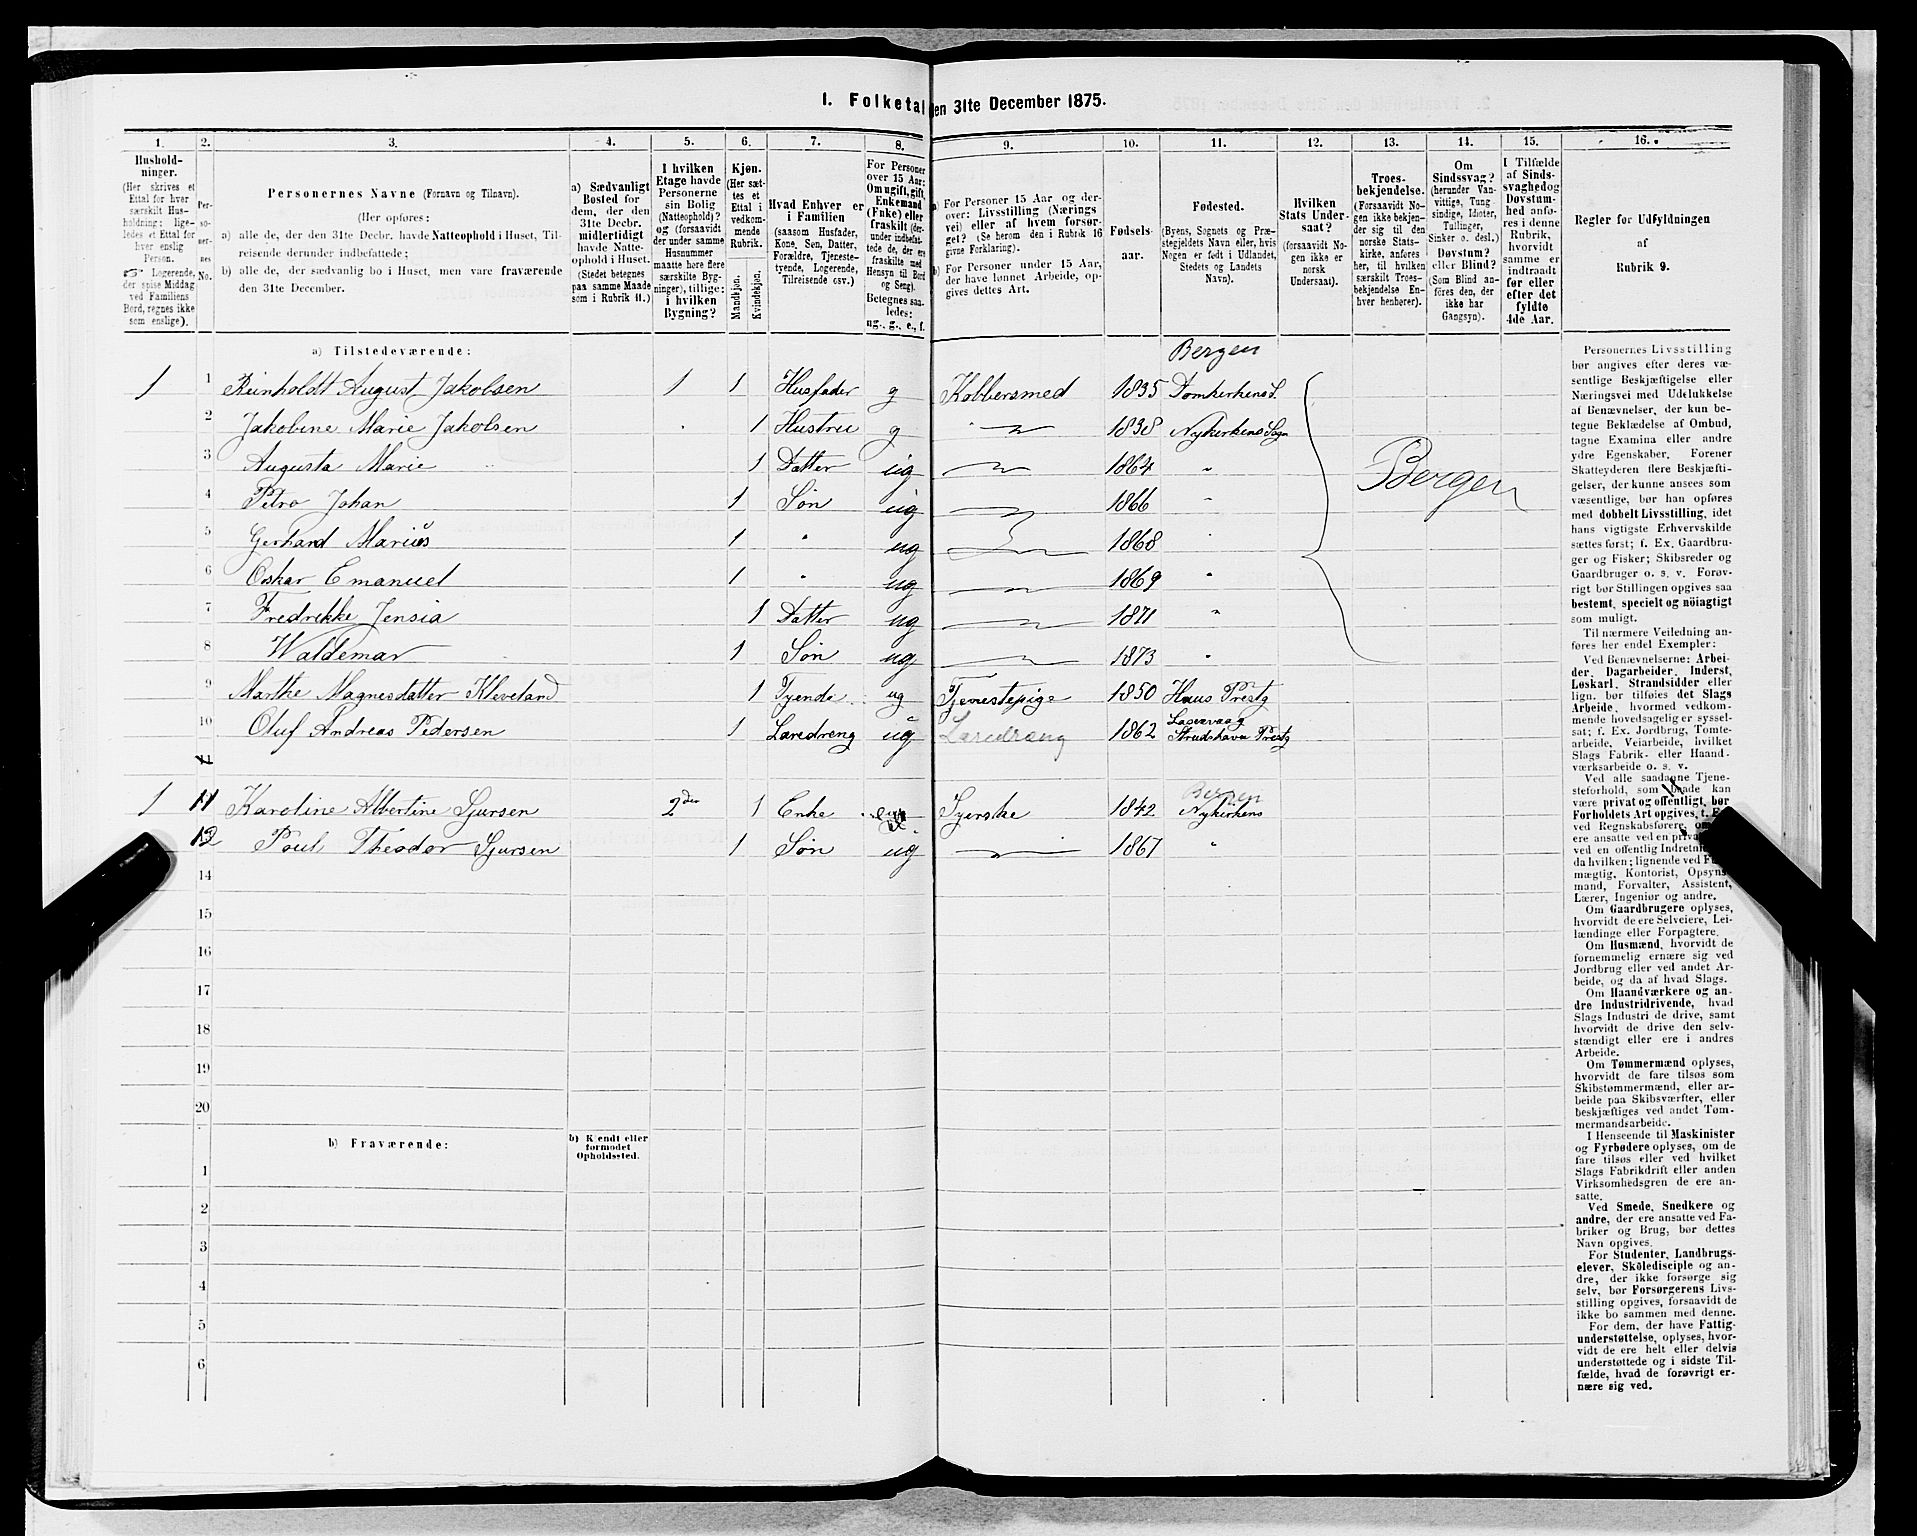 1. Folketal den 31te December 1875.
1. 2. 3. 4. 5. 6. 7. 8. 9. 10. 11. 12. 13. 14. 15. 16.
Hushold-
ninger.
(Her skrives et
Ettal for hver
særskilt Hus-
holdning; lige-
ledes et Ettal for
hver enslig
Person.
Logerende,
der spise Middag
ved Familiens
Bord, regnes ikke
som enslige).
Per-
so-
ner-
nes
No.
Personernes Navne (Fornavn og Tilnavn).
(Her opføres:
a) alle de, der den 31te Decbr. havde Natteophold i Huset, Til-
reisende derunder indbefattede;
b) alle de, der sædvanlig bo i Huset, men vare fraværende
den 31te December.
a) Sædvanligt
Bosted for
dem, der den
31te Decbr.
midlertidigt
havde Natte-
ophold i Huset.
(Stedet betegnes
paa samme Maade
som i Rubrik 11.)
I hvilken
Etage havde
Personerne
sin Bolig
(Natteophold)?
og (forsaavidt
der under samme
Husnummer
maatte høre flere
særskilte Byg-
ninger), tillige:
i hvilken
Bygning?
Kjøn.
(Her sæt-
tes et
Ettal i
vedkom-
mende
Rubrik.
Mandkjøn.
Kvindekjøn.
Hvad Enhver er
i Familien
(saasom Husfader,
Kone, Søn, Datter,
Forældre, Tjeneste-
tyende, Logerende,
Tilreisende osv.)
For Personer
over 15 Aar:
Om ugift, gift,
Enkemand
(Enke) eller
fraskilt (der-
under indbefat-
tede de, der ere
fraskilte med
Hensyn til Bord
og Seng).
Betegnes saa-
ledes:
ug., g., e., f.
a) For Personer 15 Aar og der-
over: Livsstilling (Nærings
vei) eller af hvem forsør-
get? (Se herom den i Rubrik 16
givne Forklaring).
b) For Personer under 15 Aar,
der have lønnet Arbeide, op-
gives dettes Art.
Fødsels-
aar.
Fødested.
(Byens, Sognets og Præ-
stegjeldets Navn eller, hvis
Nogen er født i Udlandet,
Stedets og Landets
Navn).
Hvilken
Stats Under-
saat?
(forsaavidt No-
gen ikke er
norsk
Undersaat).
Troes-
bekjendelse.
(Forsaavidt No-
gen ikke bekjen-
der sig til den
norske Stats-
kirke, anføres
her, til hvilken
særskilt Troes-
bekjendelse En-
hver henhører).
Om
Sindssvag?
(herunder Van-
vittige, Tung-
sindige, Idioter,
Tullinger,
Sinker o. desl.)
Døvstum?
eller Blind?
(Som Blind an-
føres den, der
ikke har
Gangsyn).
I Tilfælde
af Sinds-
svaghed og
Døvstum-
hed anfø-
res i denne
Rubrik,
hvorvidt
samme er
indtraadt
før eller
efter det
fyldte
4de Aar.
Regler for Udfyldningen
af
Rubrik 9.
a) Tilstedeværende:
Bergen
1 1 Reinholdt August Jakobsen 1 1 Husfader g Kobbersmed 1835 Domkirkens S.
2 Jakobine Marie Jakobsen 1 Hustru g 1838 Nykirkens Sogn
3 Augusta Marie " 1 Datter ug 1864 "
4 Petro Johan 1 Søn ug 1866 "
Bergen
5 Gerhard Marius 1 " ug 1868 "
6 Oskar Emanuel 1 " ug 1869 "
7 Fredrekke Jensia 1 Datter ug 1871 "
8 Waldemar 1 Søn ug 1873 "
9 Marthe Magnesdatter Kleveland 1 Tyende ug Tjenestepige 1850 Haus Prestg
10 Oluf Andreas Pedersen 1 Læredreng ug Læredreng 1862 Laxevaag
Strudshavn Prestg
11
Bergen
1 11 Karoline Albertine Sjursen 2den 1 Enke e Syerske 1842 Nykirkens
12 Poul Theodor Sjursen 1 Søn ug 1867 "
14
15
16
17
18
19
20
b) Fraværende:
b) Kjendt eller
formodet
Opholdssted.
1
2
3
4
5
6
Personernes Livsstilling
bør angives efter deres væ-
sentlige Beskjæftigelse eller
Næringsvei med Udelukkelse
af Benævnelser, der kun be-
tegne Beklædelse af Ombud,
tagne Examina eller andre
ydre Egenskaber. Forener
Skatteyderen flere Beskjæfti-
gelser, der kunne ansees som
væsentlige, bør han opføres
med dobbelt Livsstilling, idet
hans vigtigste Erhvervskilde
sættes først; f. Ex. Gaardbru-
ger og Fisker; Skibsreder og
Gaardbruger o. s. v. Forøv-
rigt bør Stillingen opgives saa
bestemt, specielt og nöiagtigt
som muligt.
Til nærmere Veiledning an-
føres her endel Exempler:
Ved Benævnelserne: Arbei-
der, Dagarbeider, Inderst,
Løskarl, Strandsidder eller
lign. bør tilføies det Slags
Arbeide, hvormed vedkom-
mende hovedsagelig er syssel-
sat; f. Ex. Jordbrug, Tomte-
arbeide, Veiarbeide, hvilket
Slags Fabrik- eller Haand-
værksarbeide o. s. v.
Ved alle saadanne Tjene-
steforhold, som baade kan
være privat og offentligt, bør
Forholdets Art opgives, t. Ex.
ved Regnskabsførere,
ere ansatte ved en
ved en offentlig Indretning
da hvilken; lignende ved
mægtig, Kontorist, Opsyns-
mand, Forvalter, Assistent,
Lærer, Ingeniør og andre.
Om Gaardbrugere oplyses,
hvorvidt de ere Selveiere, Lei-
lændinge eller Forpagtere.
Om Husmænd, hvorvidt de
fornemmelig ernære sig ved
Jordbrug eller ved andet Ar-
beide, og da af hvad Slags.
Om Haandværkere og an-
dre Industridrivende, hvad
Slags Industri de drive, samt
hvorvidt de drive den selv-
stændigt eller ere i andres
Arbeide.
Om Tømmermænd oplyses,
hvorvidt de fare tilsøs som
Skibstømmermænd, eller ar-
beide paa Skibsværfter, eller
beskjæftiges ved andet Tøm-
mermandsarbeide.
I Henseende til Maskinister
og Fyrbødere oplyses, om de
fare tilsøs eller ved hvilket
Slags Fabrikdrift eller anden
Virksomhedsgren de ere an-
satte.
Ved Smede, Snedkere og
andre, der ere ansatte ved Fa-
briker og Brug, bør dettes
Navn opgives.
For Studenter, Landbrugs-
elever, Skôledisciple og an-
dre, der ikke forsørge sig
selv, bør Forsørgerens Livs-
stilling opgives, forsaavidt de
ikke bo sammen med denne.
For dem, der have Fattig-
understøttelse, oplyses, hvor-
vidt de ere helt eller delvis
understøttede og i sidste Til-
fælde, hvad de forøvrigt er-
nære sig ved.